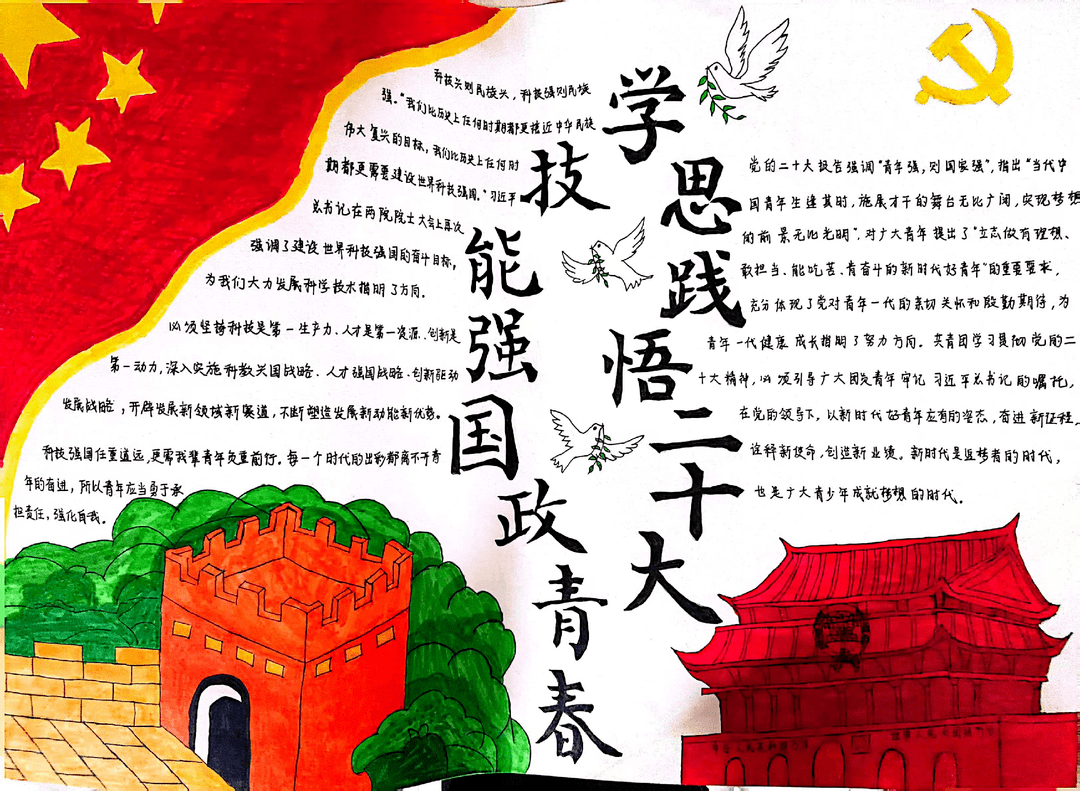 学思践悟二十大
技能强国政青春
科技兴则民族兴，科技强则民族
强。“我们比历史上任何时期都更接近中华民族
伟大复兴的目标，我们比历史上任何时
期都更需要建设世界科技强国。”习近平
总书记在两院院士大会上再次
强调了建设世界科技强国的奋斗目标，
为我们大力发展科学技术指明了方向。
必须坚持科技是第一生产力、人才是第一资源、创新是
第一动力，深入实施科教兴国战略、人才强国战略、创新驱动
发展战略，开辟发展新领域新赛道，不断塑造发展新动能新优势。
科技强国任重道远，更需我辈青年负重前行。每一个时代的出彩都离不开青
年的奋进，所以青年应当勇于承
担责任，强化自我。
党的二十大报告强调“青年强，则国家强”，指出“当代中
国青年生逢其时，施展才干的舞台无比广阔，实现梦想
的前景无比光明”。对广大青年提出了“立志做有理想、
敢担当、能吃苦、肯奋斗的新时代好青年”的重要要求，
充分体现了党对青年一代的亲切关怀和殷勤期待，为
青年一代健康成长指明了努力方向。共青团学习贯彻党的二
十大精神，必须引导广大团员青年牢记习近平总书记的嘱托，
在党的领导下，以新时代好青年应有的姿态，奋进新征程，
诠释新使命，创造新业绩。新时代是追梦者的时代，
也是广大青少年成就梦想的时代。